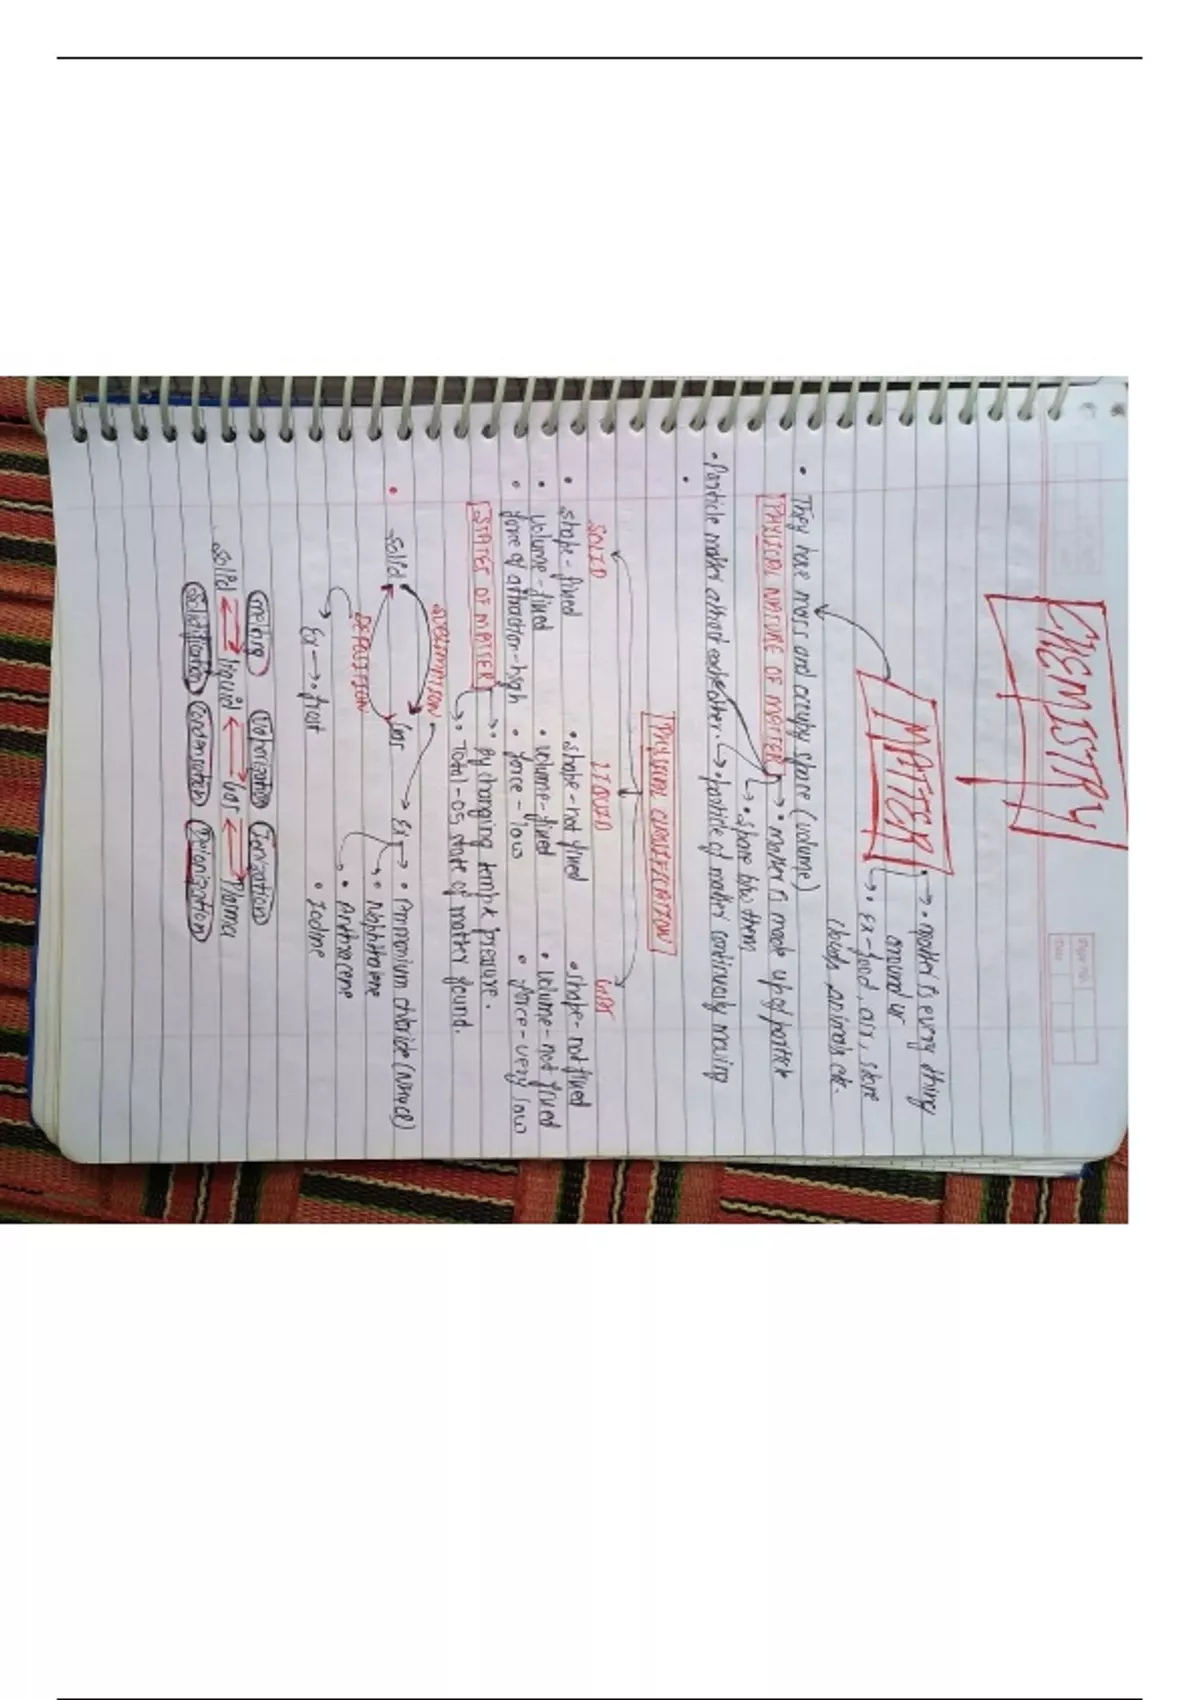 CHEMISTRY
MATTER
• matter is every thing
around us
• Ex-food, air, stone
clouds, animals etc.
• They have mass and occupy space (volume)
PHYSICAL NATURE OF MATTER
• matter is made up of particle
• space b/w them
• Particle matter attract eachother
• particle of matter continuously moving
PHYSICAL CLASSIFICATION
SOLID LIQUID GAS
• shape - fixed • shape - not fixed • shape - not fixed
• volume - fixed • volume - fixed • volume - not fixed
• force of attraction - high • force - low • force - very low
STATES OF MATTER
• By changing temp & pressure.
• Total - 05 state of matter found.
SUBLIMATION
• Solid Gas Ex • Ammonium chloride (NH4Cl)
DEPOSITION • Naphthalene
• Anthracene
Ex • frost • Iodine
melting Vaporization Ionization
solid liquid Gas Plasma
Solidification Condensation Deionization